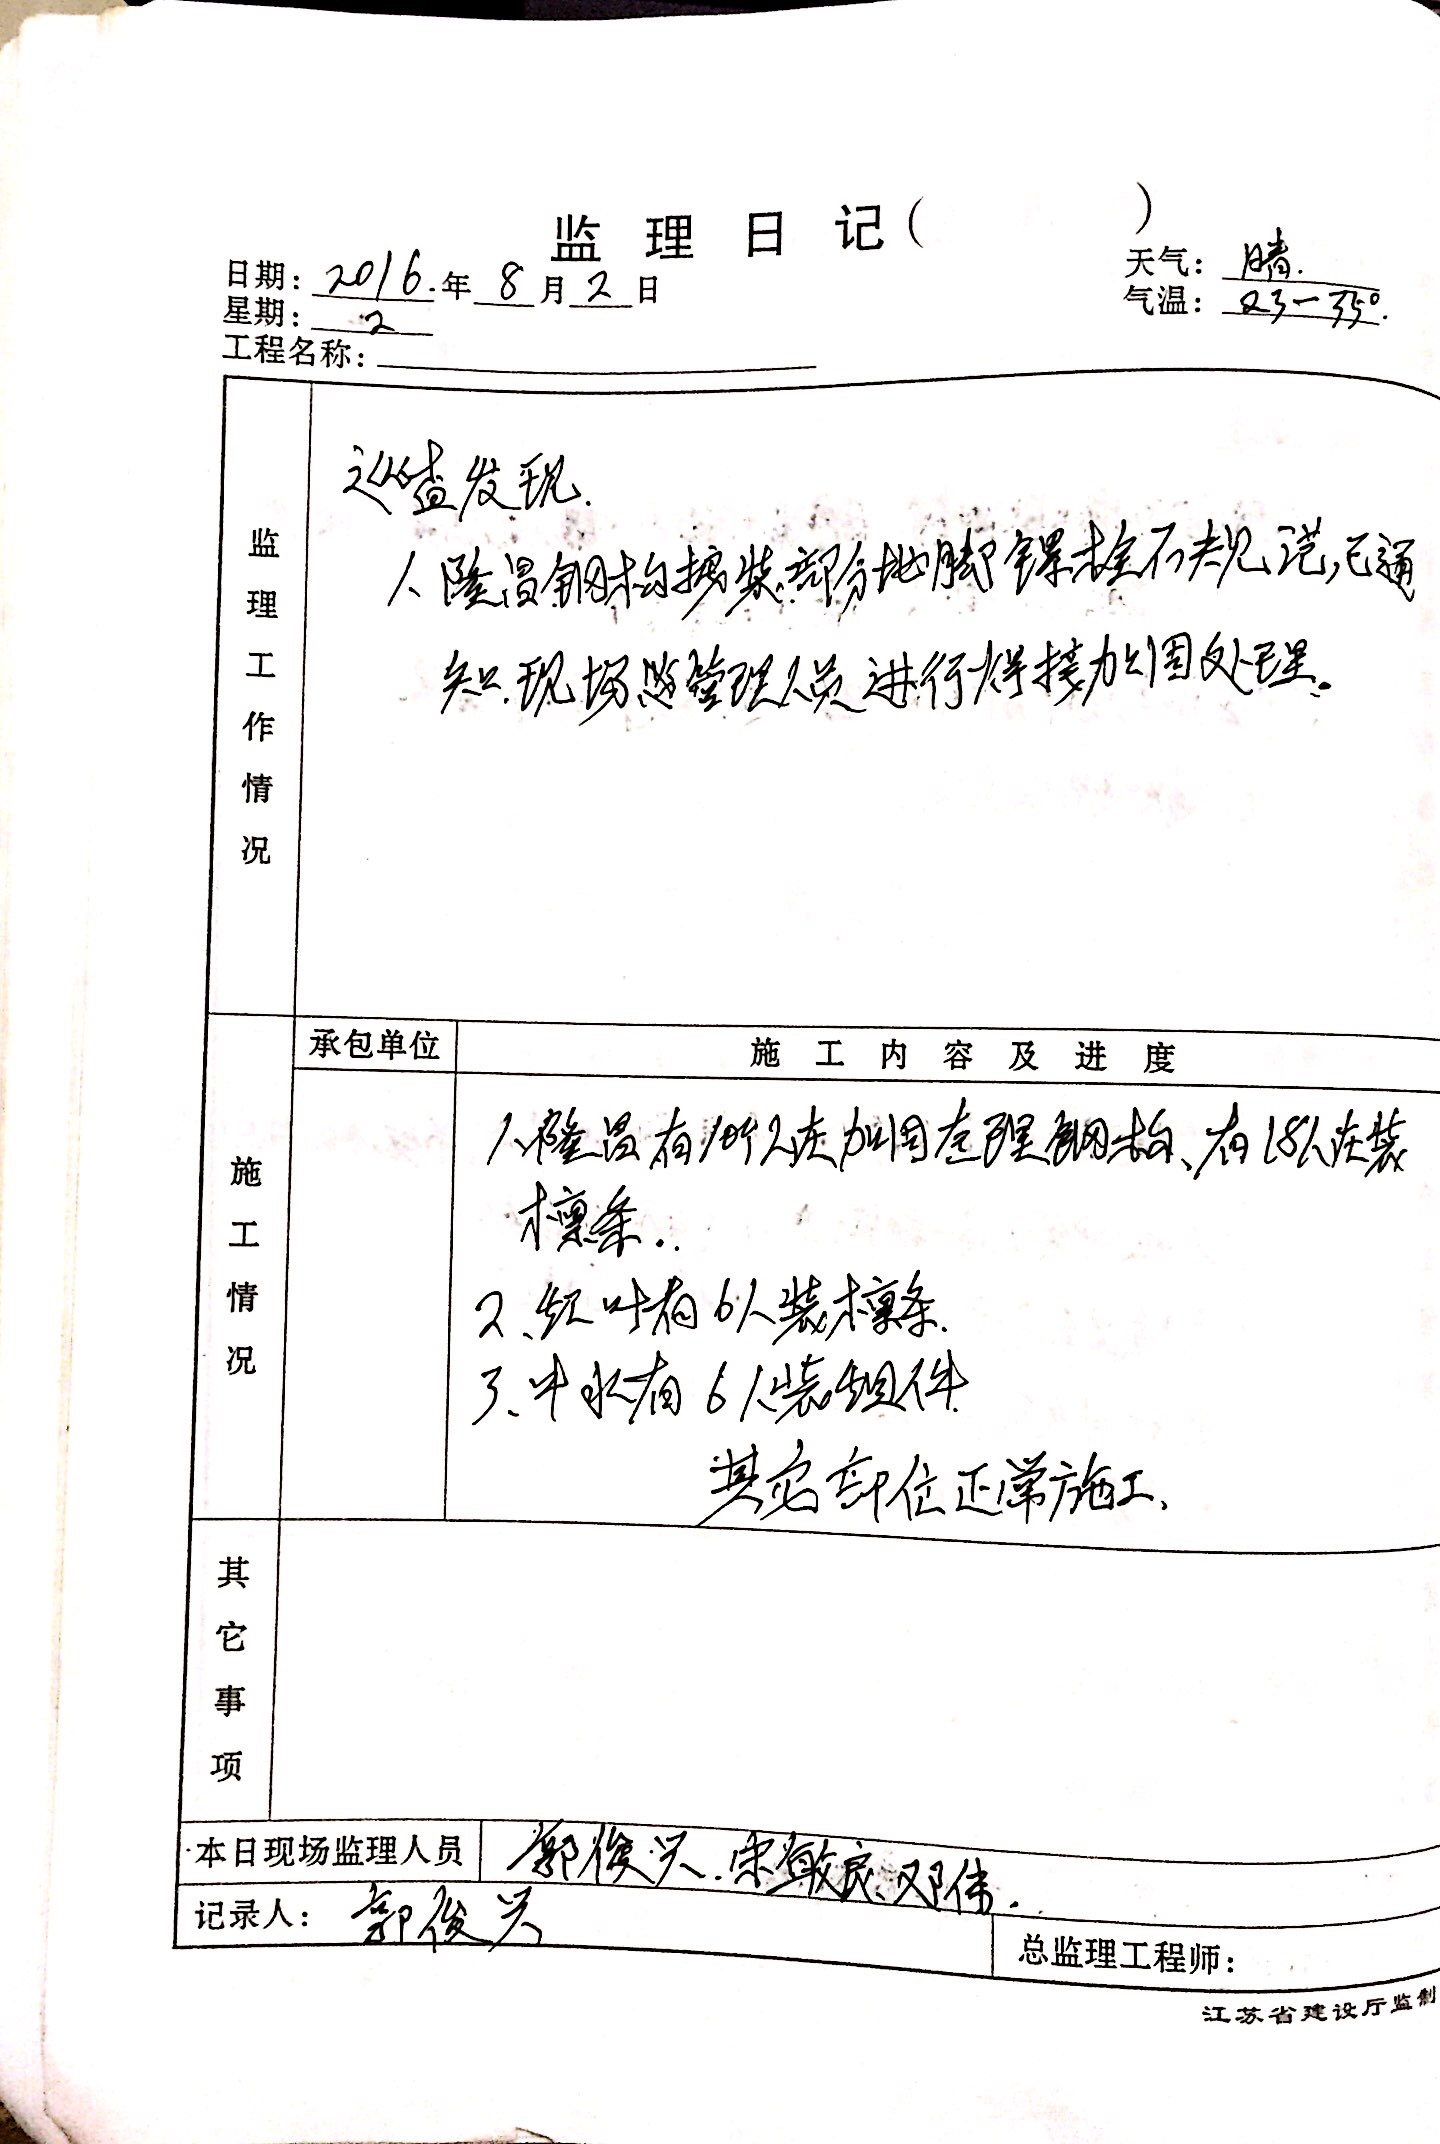 监理日记（ ）
日期：2016.年8月2日
天气：晴.
星期：2
气温：23—35°.
工程名称：
监理工作情况
巡查发现.
1、隆昌钢构拼装部分地脚锣栓不规范,已通
知现场管理人员进行焊接加固处理。
承包单位
施工内容及进度
施工情况
1、隆昌有10个人在加固处理钢构、有18人在装
檩条.
2、红叶有6人装檩条.
3、中水有6人装组件
其它部位正常施工、
其它事项
本日现场监理人员 郭俊兴.宋敏良、邓伟.
记录人：郭俊兴
总监理工程师：
江苏省建设厅监制